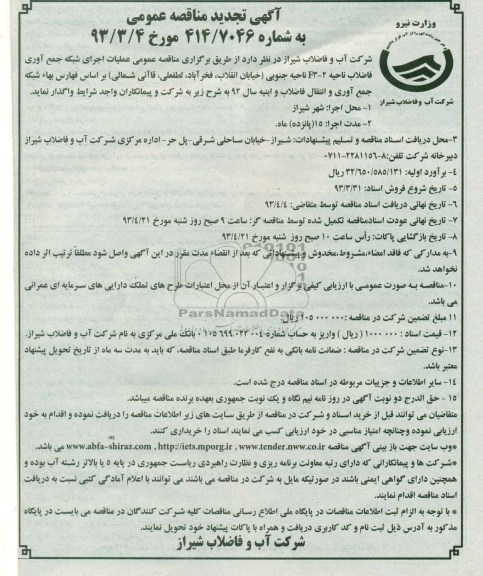 آگهی تجدید مناقصه عمومی
به شماره ۴۱۴/۷۰۴۶ مورخ ۹۳/۳/۴
وزارت نیرو
شرکت آب و فاضلاب شیراز
شرکت آب و فاضلاب شیراز در نظر دارد از طریق برگزاری مناقصه عمومی عملیات اجرای شبکه جمع آوری
فاضلاب ناحیه F۳-۲ ناحیه جنوبی (خیابان انقلاب، فخرآباد، لطفعلی، قاآنی شمالی) بر اساس فهارس بهاء شبکه
جمع آوری و انتقال فاضلاب و ابنیه سال ۹۲ به شرح زیر به شرکت و پیمانکاران واجد شرایط واگذار نماید.
۱- محل اجرا: شهر شیراز
۲- مدت اجرا: ۱۵(پانزده) ماه.
۳-محل دریافت اسناد مناقصه و تسلیم پیشنهادات: شیراز-خیابان ساحلی شرقی-پل حر- اداره مرکزی شرکت آب و فاضلاب شیراز
دبیرخانه شرکت تلفن:۸-۲۲۸۱۱۵۶-۰۷۱۱
۴- برآورد اولیه: ۳۲/۶۵۰/۵۸۵/۱۳۱ ریال
۵- تاریخ شروع فروش اسناد: ۹۳/۳/۳۱
۶- تاریخ نهائی دریافت اسناد مناقصه توسط متقاضی: ۹۳/۴/۴
۷- تاریخ نهائی عودت اسنادمناقصه تکمیل شده توسط مناقصه گر: ساعت ۹ صبح روز شنبه مورخ ۹۳/۴/۲۱
۸- تاریخ بازگشایی پاکات: رأس ساعت ۱۰ صبح روز شنبه مورخ ۹۳/۴/۲۱
۹-به مدارکی که فاقد امضاء،مشروط،مخدوش و پیشنهاداتی که بعد از انقضاء مدت مقرر در این آگهی واصل شود مطلقاً ترتیب اثر داده
نخواهد شد.
۱۰-مناقصه به صورت عمومی با ارزیابی کیفی برگزار و اعتبار آن از محل اعتبارات طرح های تملک دارایی های سرمایه ای عمرانی
می باشد.
۱۱ مبلغ تضمین شرکت در مناقصه :۱۰۵۰۰۰۰۰۰۰ ریال.
۱۲- قیمت اسناد : ۱۰۰۰۰۰۰ ( ریال ) واریز به حساب شماره بانک ملی مرکزی به نام شرکت آب و فاضلاب شیراز.
۱۳-نوع تضمین شرکت در مناقصه : ضمانت نامه بانکی به نفع کارفرما طبق اسناد مناقصه، که باید به مدت سه ماه از تاریخ تحویل پیشنهاد
معتبر باشد.
۱۴- سایر اطلاعات و جزییات مربوطه در اسناد مناقصه درج شده است.
۱۵ - حق الدرج دو نوبت آگهی در روزنامه نیم نگاه و یک نوبت جمهوری بعهده برنده مناقصه میباشد.
متقاضیان می توانند قبل از خرید اسناد و شرکت در مناقصه از طریق سایت های زیر اطلاعات مناقصه را دریافت نموده و اقدام به خود
ارزیابی نموده وچنانچه امتیاز مناسبی در خود ارزیابی کسب می نمایند اسناد را خریداری کنند.
*وب سایت جهت باز بینی آگهی مناقصه www.abfa-shiraz.com , http://iets.mporg.ir , www.tender.nww.co.ir می باشد.
*شرکت ها و پیمانکارانی که دارای رتبه معاونت برنامه ریزی و نظارت راهبردی ریاست جمهوری در پایه ۵ یا بالاتر رشته آب بوده و
همچنین دارای گواهی ایمنی باشند در صورتیکه مایل به شرکت در مناقصه می باشند می توانند با اعلام آمادگی کتبی نسبت به دریافت
اسناد مناقصه اقدام نمایند.
* با توجه به الزام ثبت اطلاعات مناقصات در پایگاه ملی اطلاع رسانی مناقصات کلیه شرکت کنندگان در مناقصه می بایست در پایگاه
مذکور به آدرس ذیل ثبت نام و کد کاربری دریافت و همراه با پاکات پیشنهاد خود تحویل نمایند.
شرکت آب و فاضلاب شیراز
ParsNamadData